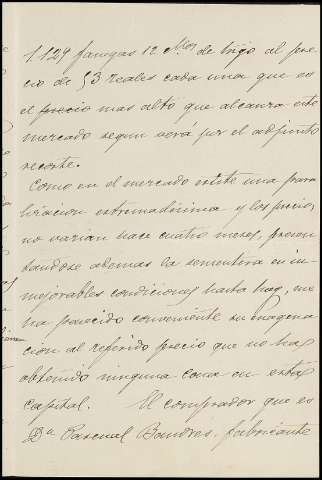 1.124 fanegas 12 Mlos de trigo al pre-
cio de 53 reales cada una que es
el precio mas alto que alcanza este
mercado segun verá por el adjunto
recorte.
Como en el mercado existe una para
lizacion estremadisima y los precios,
no varian hace cuatro meses, presen
tandose ademas la sementera en in-
mejorables condiciones hasta hoy, me
ha parecido conveniente su enagena
cion al referido precio que no has
obtenido ninguna como en esta
capital. El comprador que es
Dn Pascual Bandres, fabricante